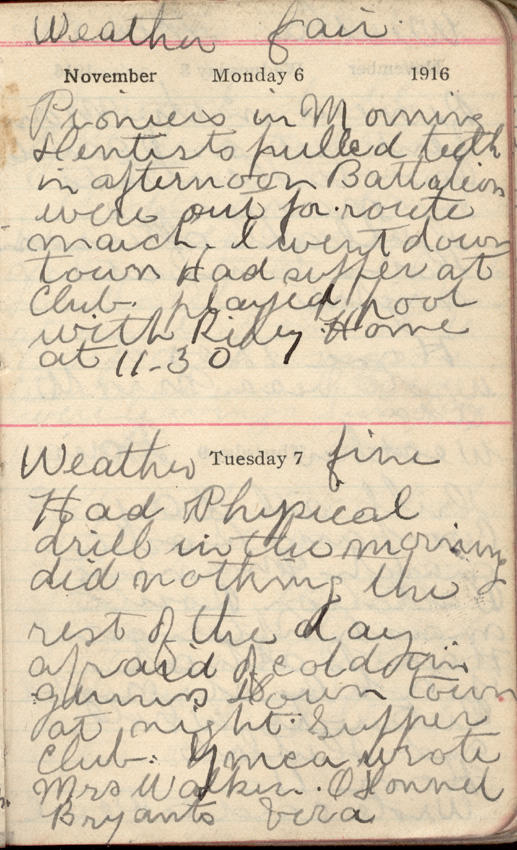 Weather fair.
November Monday 6 1916
Pioniers in Morning
Dentists pulled teeth
in afternoon Battalion
were out for route
march. I went down
town Had supper at
Club. played pool
with Riley Home
at 11-30
Weather Tuesday 7 fine
Had Physical
drill in the morning
did nothing the
rest of the day
afraid of cold in
gums Down town
at night. Supper
Club. Ymca wrote
Mrs Walker. O'Donnel
Bryants Vera